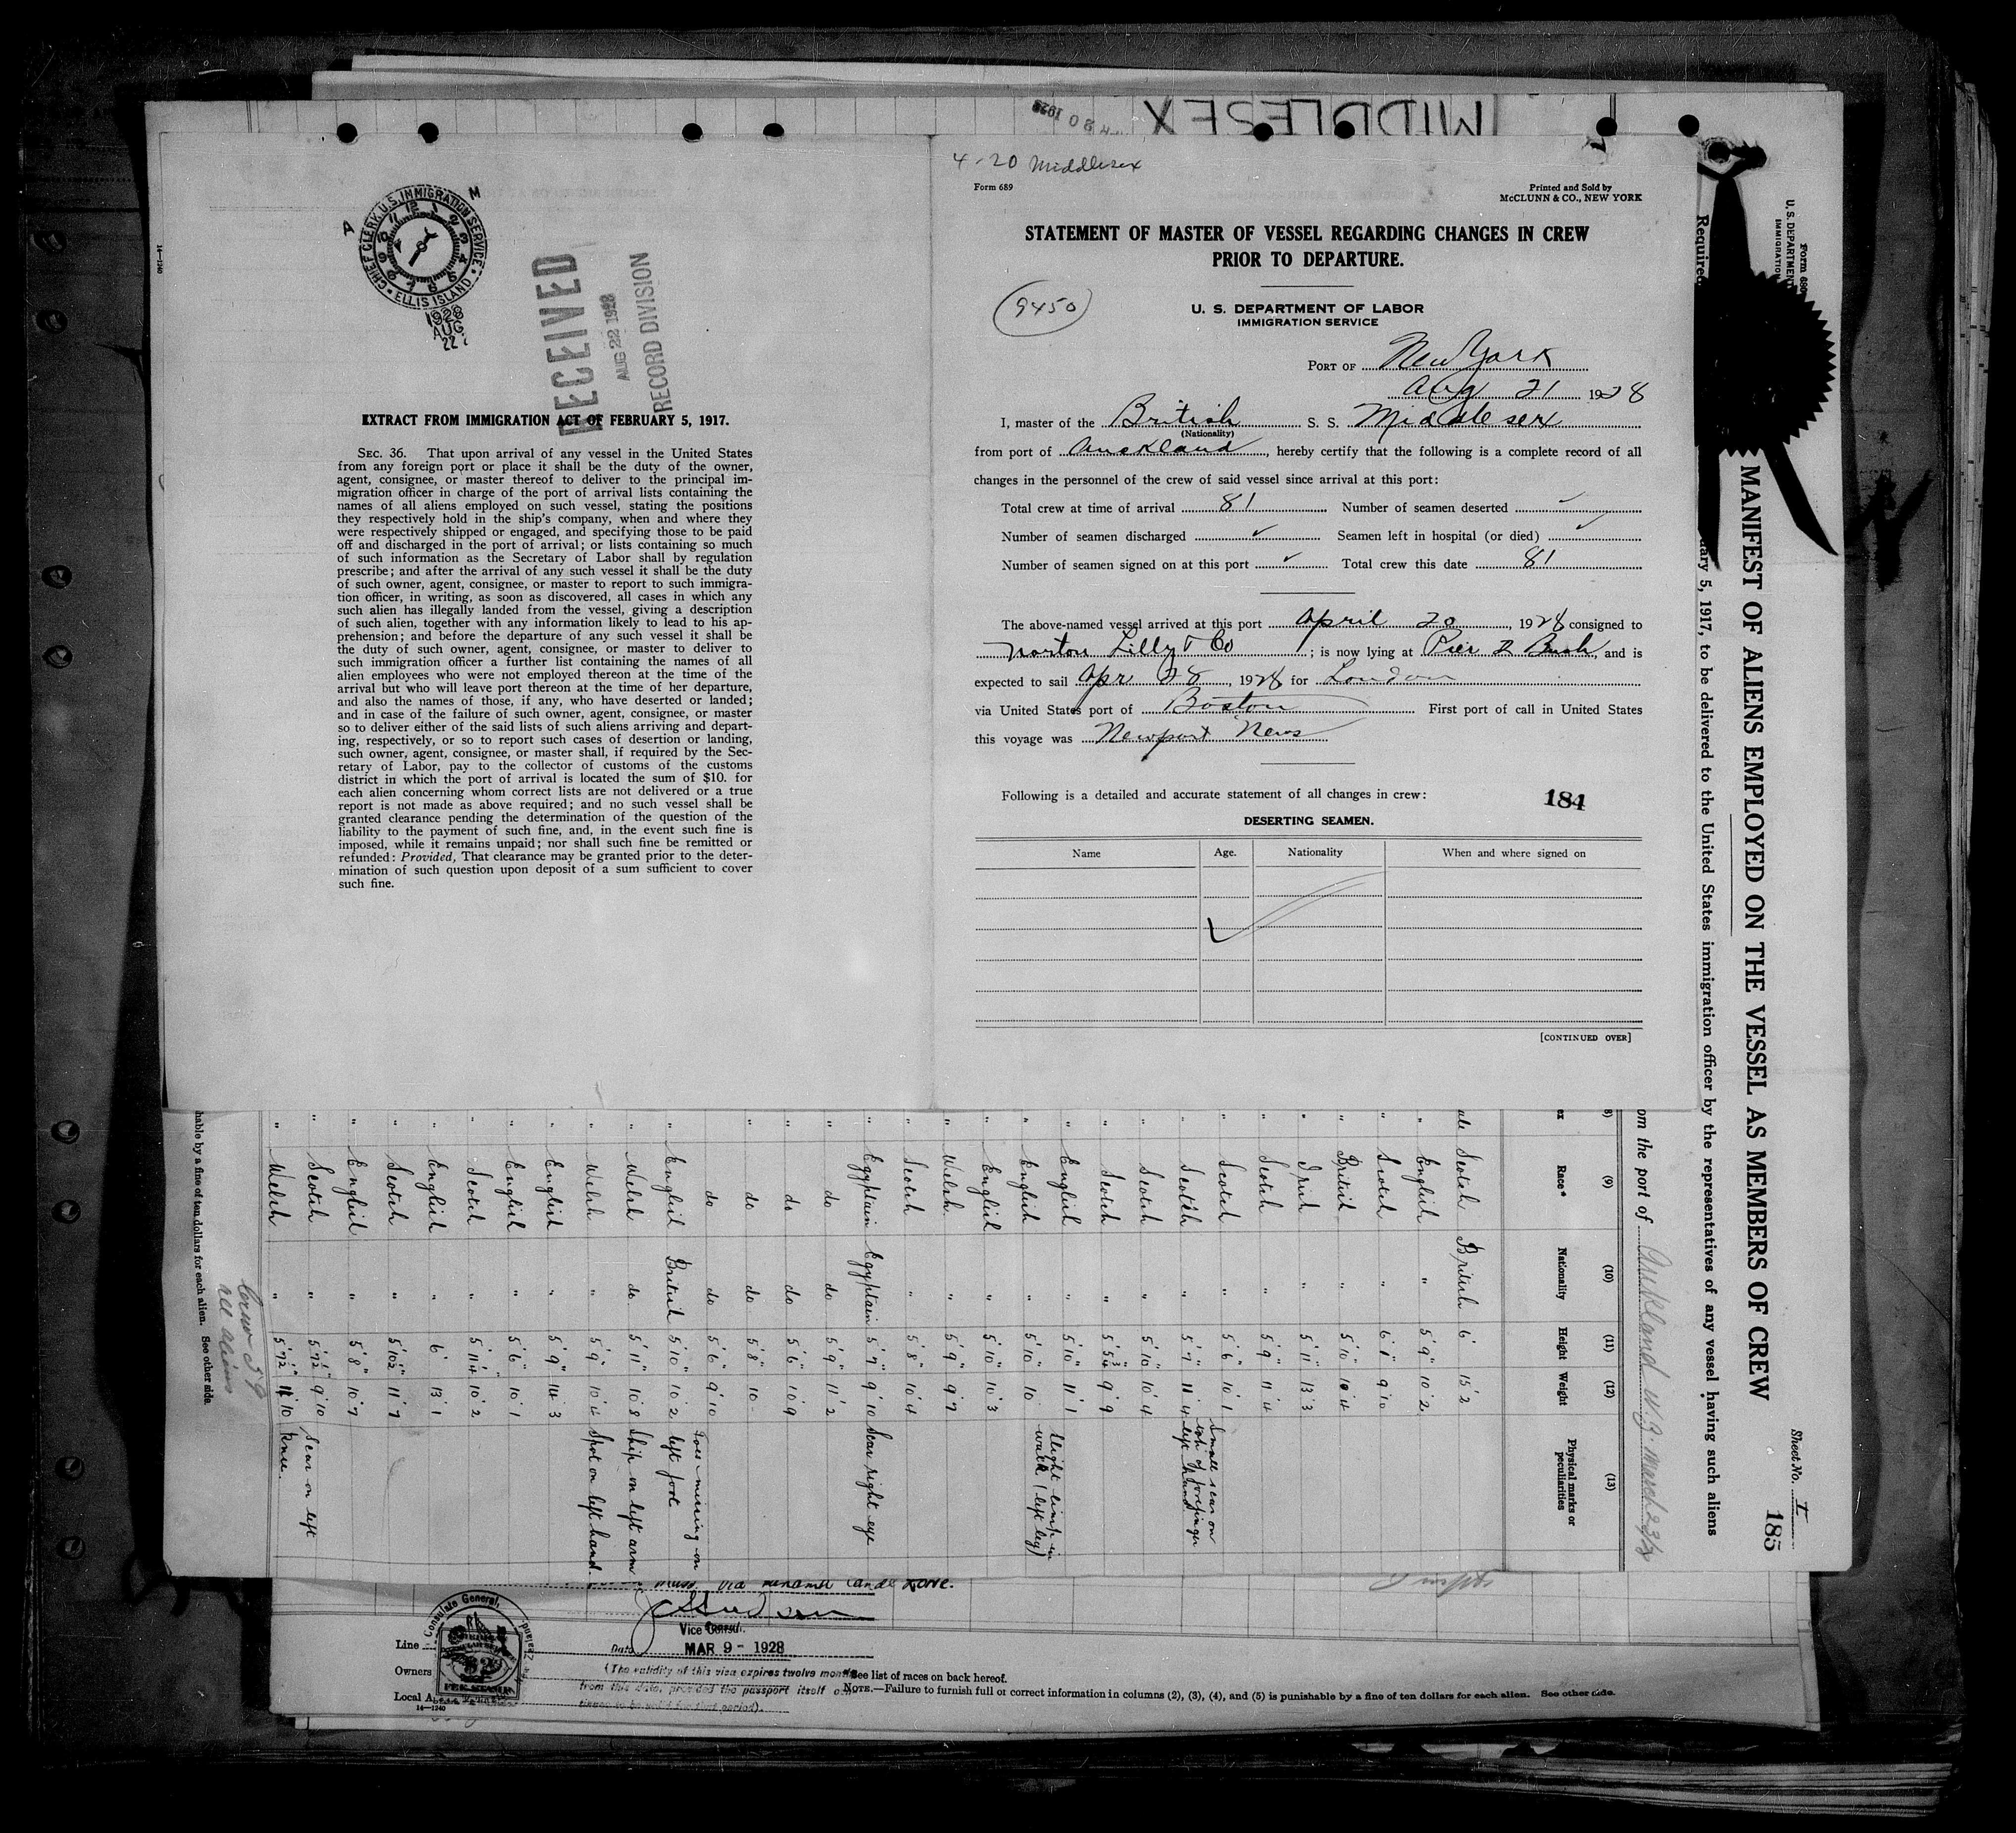 MIDDLESEX
20 1928
4-20 Middlesex
Form 689
Printed and Sold by
McCLUNN & CO., NEW YORK
STATEMENT OF MASTER OF VESSEL REGARDING CHANGES IN CREW
PRIOR TO DEPARTURE.
9450
U. S. DEPARTMENT OF LABOR
IMMIGRATION SERVICE
PORT OF New York
Aug 21 1928
I, master of the British S. S. Middlesex
(Nationality)
from port of Auckland, hereby certify that the following is a complete record of all
changes in the personnel of the crew of said vessel since arrival at this port:
Total crew at time of arrival 81 Number of seamen deserted ✓
Number of seamen discharged ✓ Seamen left in hospital (or died) ✓
Number of seamen signed on at this port ✓ Total crew this date 81
The above-named vessel arrived at this port April 20, 1928 consigned to
Norton Lilly & Co; is now lying at Pier 2 Bush, and is
expected to sail Apr 28, 1928 for London
via United States port of Boston First port of call in United States
this voyage was Newport News
Following is a detailed and accurate statement of all changes in crew:
184
DESERTING SEAMEN.
Name Age. Nationality When and where signed on
[CONTINUED OVER]
A M
CHIEF CLERK, U.S. IMMIGRATION SERVICE
ELLIS ISLAND
1928
AUG
22
RECEIVED
AUG 22 1928
RECORD DIVISION
14—1240
EXTRACT FROM IMMIGRATION ACT OF FEBRUARY 5, 1917.
SEC. 36. That upon arrival of any vessel in the United States
from any foreign port or place it shall be the duty of the owner,
agent, consignee, or master thereof to deliver to the principal im-
migration officer in charge of the port of arrival lists containing the
names of all aliens employed on such vessel, stating the positions
they respectively hold in the ship's company, when and where they
were respectively shipped or engaged, and specifying those to be paid
off and discharged in the port of arrival; or lists containing so much
of such information as the Secretary of Labor shall by regulation
prescribe; and after the arrival of any such vessel it shall be the duty
of such owner, agent, consignee, or master to report to such immigra-
tion officer, in writing, as soon as discovered, all cases in which any
such alien has illegally landed from the vessel, giving a description
of such alien, together with any information likely to lead to his ap-
prehension; and before the departure of any such vessel it shall be
the duty of such owner, agent, consignee, or master to deliver to
such immigration officer a further list containing the names of all
alien employees who were not employed thereon at the time of the
arrival but who will leave port thereon at the time of her departure,
and also the names of those, if any, who have deserted or landed;
and in case of the failure of such owner, agent, consignee, or master
so to deliver either of the said lists of such aliens arriving and depart-
ing, respectively, or so to report such cases of desertion or landing,
such owner, agent, consignee, or master shall, if required by the Sec-
retary of Labor, pay to the collector of customs of the customs
district in which the port of arrival is located the sum of $10. for
each alien concerning whom correct lists are not delivered or a true
report is not made as above required; and no such vessel shall be
granted clearance pending the determination of the question of the
liability to the payment of such fine, and, in the event such fine is
imposed, while it remains unpaid; nor shall such fine be remitted or
refunded: Provided, That clearance may be granted prior to the deter-
mination of such question upon deposit of a sum sufficient to cover
such fine.
Form 680
U. S. DEPARTMENT
IMMIGRATION
MANIFEST OF ALIENS EMPLOYED ON THE VESSEL AS MEMBERS OF CREW
Sheet No. I
185
Required
uary 5, 1917, to be delivered to the United States immigration officer by the representatives of any vessel having such aliens
om the port of Auckland N.Z. March 23/28
(9) (10) (11) (12) (13)
Race* Nationality Height Weight Physical marks or peculiarities
Scotch British 6' 15 2
English " 5' 9" 10 2
Scotch " 6' 1" 9 10
British " 5' 10" 10 4
Irish " 5' 11" 13 3
Scotch " 5' 9" 11 4
Scotch " 5' 6" 10 1 Small scar on
Scotch " 5' 7" 11 4 top of forefinger left hand
Scotch " 5' 10" 10 4
Scotch " 5' 5¾" 9 9
English " 5' 10" 11 1 Slight limp in
English " 5' 10" 10 walk (left leg)
English " 5' 10" 10 3
Welsh " 5' 9" 9 7
Scotch " 5' 8" 10 4
Egyptain Egyptain 5' 7" 9 10 Scar right eye
do do 5' 9" 11 2
do do 5' 6" 10 9
do do 5' 8" 10 -
do do 5' 6" 9 10 Toes missing on
English British 5' 10" 10 2 left foot
Welsh do. 5' 11" 10 8 Ship on left arm
Welsh " 5' 9" 10 4 Spot on left hand.
English " 5' 9" 14 3
English " 5' 6" 10 1
Scotch " 5' 11" 10 2
English " 6' 13 1
Scotch " 5' 10½" 11 7
English " 5' 8" 10 7
Scotch " 5' 7½" 9 10 Scar on left
Welsh " 5' 7½" 11 10 knee.
Crew 59
all aliens
hable by a fine of ten dollars for each alien. See other side.
via Panama Canal Zone.
Vice Consul.
Date MAR 9 - 1928
(The validity of this visa expires twelve months
from this date, provided the passport itself con-
tinues to be valid for that period).
Consulate General,
Line
Owners
Local A
14—1240
*See list of races on back hereof.
NOTE.—Failure to furnish full or correct information in columns (2), (3), (4), and (5) is punishable by a fine of ten dollars for each alien. See other side.